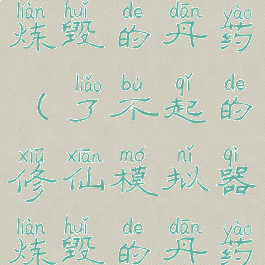 liàn huǐ de dān yào
炼毁的丹药
liǎo bù qǐ de
（了不起的
xiū xiān mó nǐ qì
修仙模拟器
liàn huǐ de dān yào
炼毁的丹药